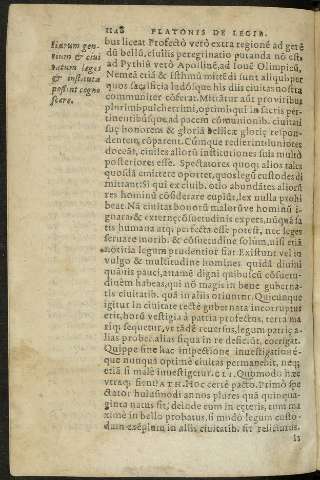 1148 PLATONIS DE LEGIB.
liarum gen-
tium & ciui
tatum leges
& instituta
possint cogno
scere.
bus liceat Profectò verò extra regionē ad gerē
dū bellū, ciuilis peregrinatio putanda nō est:
ad Pythiū verò Apollinē, ad Iouē Olimpicū,
Nemeā etiā & isthmū mittēdi sunt aliqui
quos sacrificia ludosque his diis ciuitas nostra
communiter cōferat. Mittātur aūt pro viribus
plurimi pulcherrimi, optimi, qui in sacris per-
tinentibúsque ad pacem cōmunionib. ciuitati
suæ honorem & gloriā bellicæ gloriæ respon-
dentem, cōparent. Cúmque redierint iuniores
doceāt, ciuiles aliorū institutiones suis multò
posteriores esse. Spectatores quoque alios tales
quosdā emittere oportet, quos legū custodes di
mittant: Si qui ex ciuib. otio abundātes alioru
res hominū cōsiderare cupiūt, lex nulla prohi
beat. Nā ciuitas bonorū malorūve hominū i-
gnara & externę cōsuetudinis expers, nūquā sa
tis humana atq; perfecta esse potest, nec leges
seruare morib. & cōsuetudine solum, nisi etiā
notitia legum prudentior fiat Existunt vel in
vulgo & multitudine homines quidā diuini
quāuis pauci, attamē digni quibuscū cōsuetu-
dinem habeas, qui nō magis in bene guberna-
tis ciuitatib. quā in aliis oriuntur. Quicunque
igitur in ciuitate rectè gubernata incorruptus
erit, horū vestigia à patria profectus, terra ma
riq; sequetur, vt tādē reuersus, legum patriæ a-
lias probet, alias siqua in re deficiūt, corrigat.
Quippe sine hac inspectione inuestigationé-
que nunquā optimè ciuitas permanebit, neq;
etiā si malè inuestigetur. CLI. Quomodo hæc
vtraq; fient? ATH. Hoc certè pacto. Primò spe
ctator huiusmodi annos plures quā quinqua-
ginta natus sit, deinde cum in cęteris, tum ma
ximè in bello probatus, si modò legum custo-
dum exéplum in aliis ciuitatib. sit relicturus.